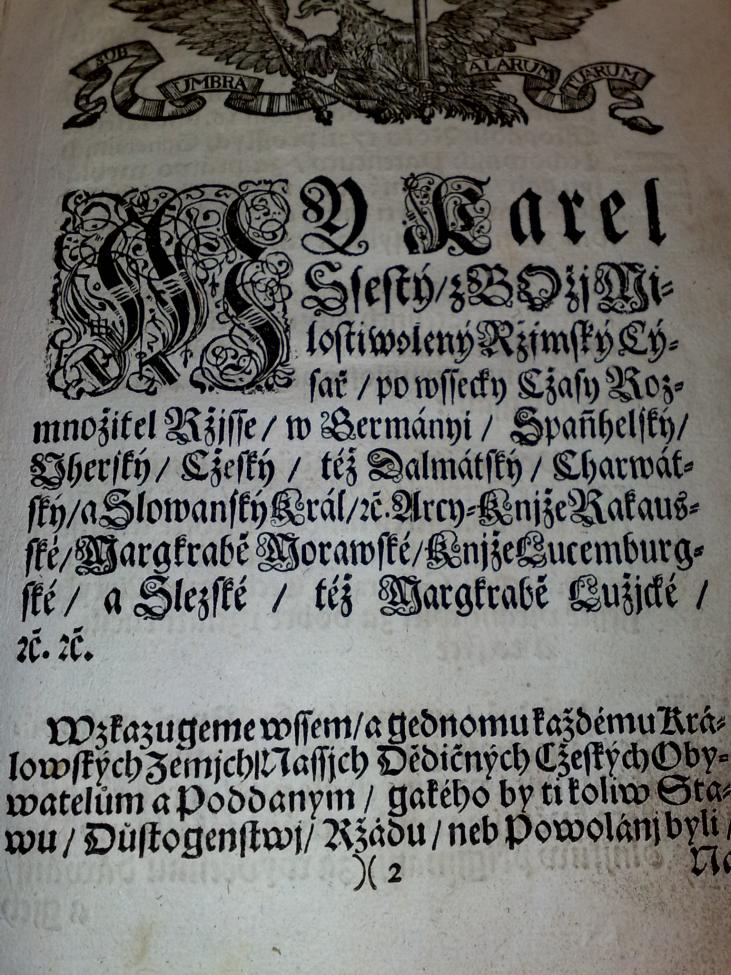 SUB UMBRA ALARUM TUARUM
MY Karel
Ssestý / z BOžj Mi-
losti wolený Ržjmský Cý-
sař / po wssecky Cžasy Roz-
množitel Ržjsse / w Germányi / Spañhelský /
Vherský / Cžeský / též Dalmátský / Charwát-
ský / a Slowanský Král / ꝛč. Arcy-Knjže Rakaus-
ské / Margkrabě Morawské / Knjže Lucemburg-
ské / a Slezské / též Margkrabě Lužjcké /
ꝛč. ꝛč.
Wzkazugeme wssem / a gednomu každému Krá-
lowských Zemjch Nassjch Dědičných Cžeských Oby-
watelům a Poddaným / gakého by ti koliw Sta-
wu / Důstogenstwj / Ržádu / neb Powolánj byli /
)( 2
Na